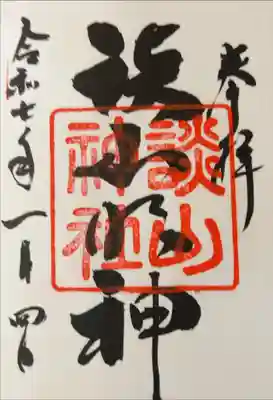 奉拝
談山明神
談山
神社
令和七年一月四日